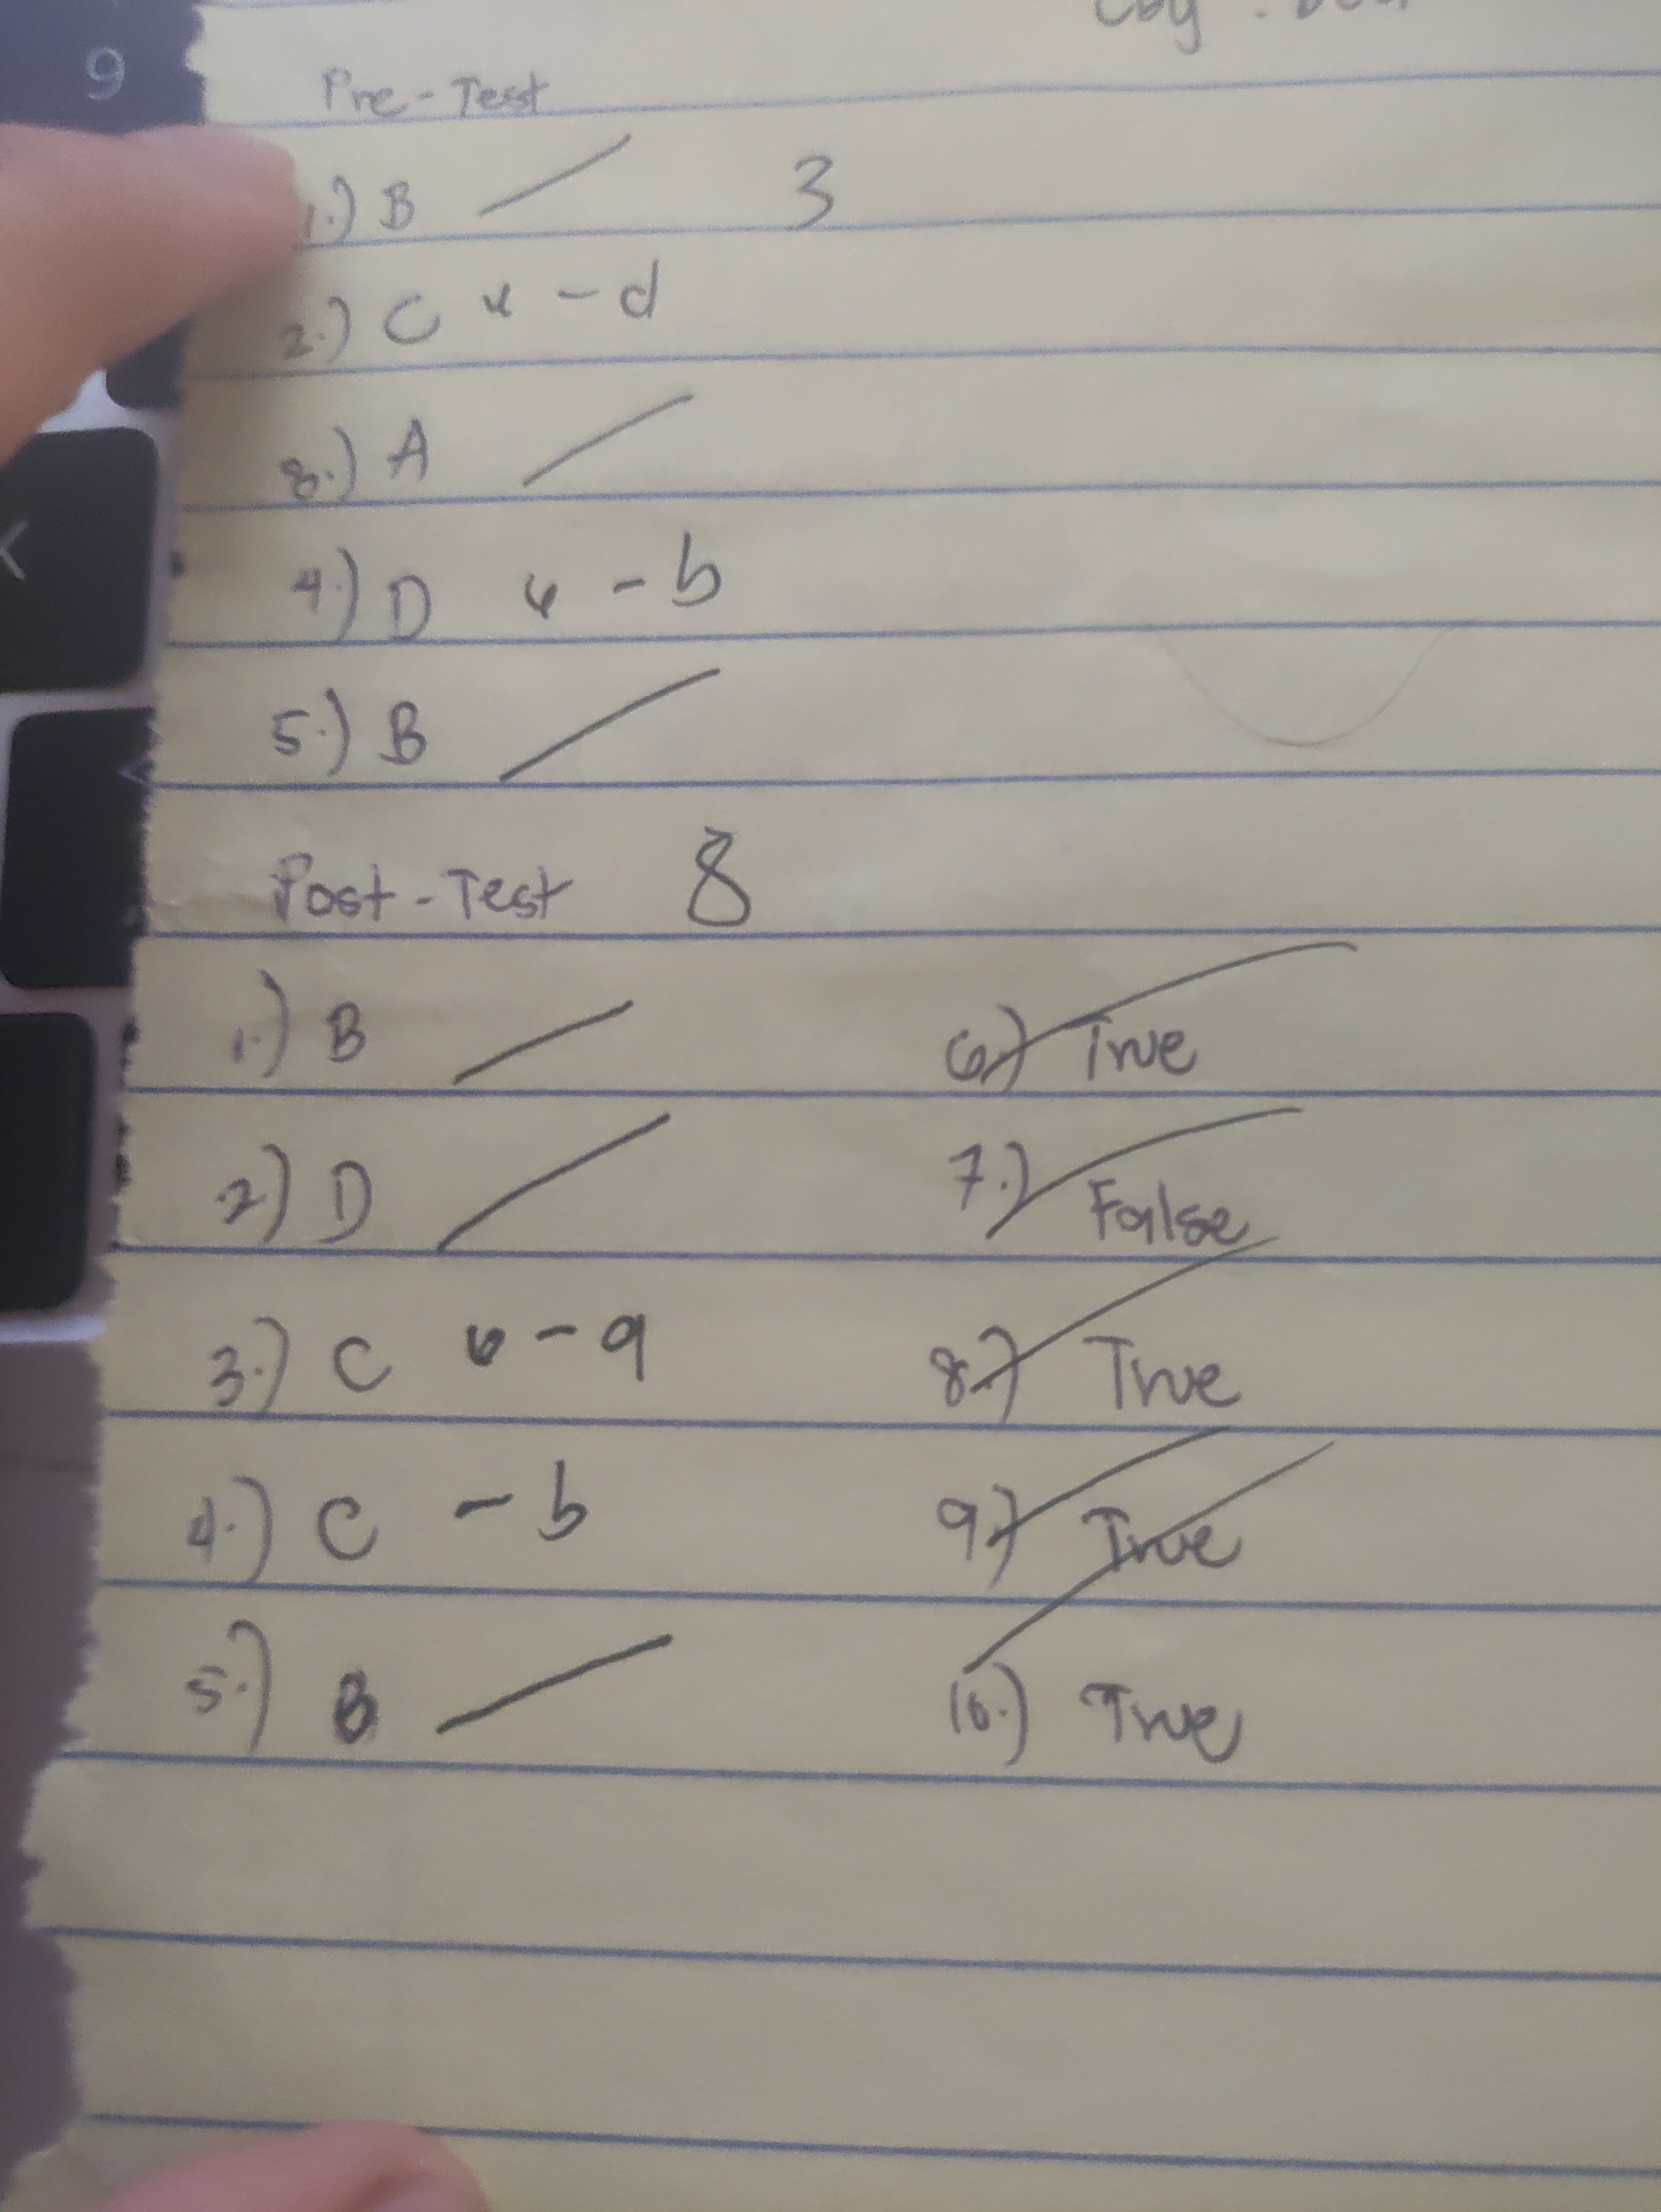 Pre-Test
1.) B 3
2.) C x - d
3.) A
4.) D x - b
5.) B
Post-Test 8
1.) B
2.) D
3.) C x - a
4.) C - b
5.) B
6.) True
7.) False
8.) True
9.) True
10.) True
9